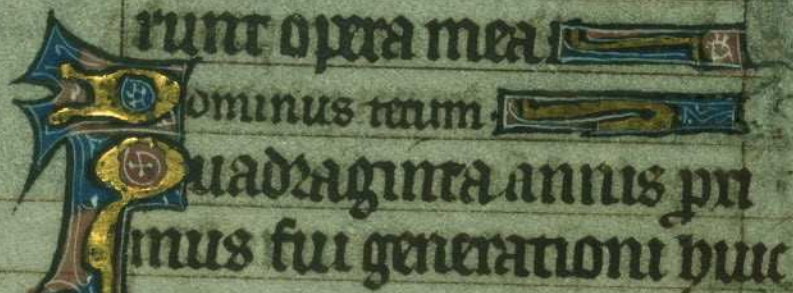 runt opera mea
Dominus tecum.
Quadraginta annis ꝓxi
mus fui generationi huic